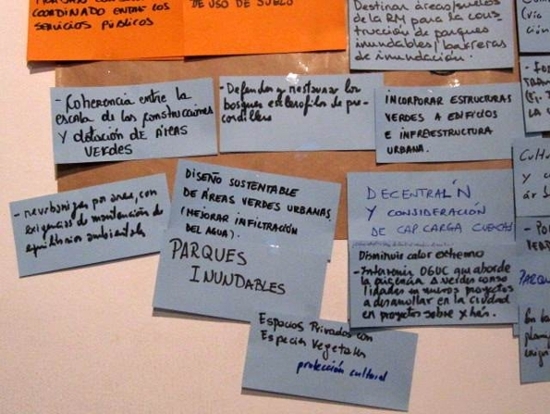 COORDINADO ENTRE LOS
SERVICIOS PÚBLICOS
DE USO DE SUELO
Destinar áreas/suelos
de la RM para la cons
trucción de parques
inundables/barreras
de inundación.
- Coherencia entre la
escala de las construcciones
Y dotación DE ÁREAS
VERDES
- Defender y restaurar los
bosques esclerofilos de pre-
cordillera
INCORPORAR ESTRUCTURAS
VERDES A EDIFICIOS
E INFRAESTRUCTURA
URBANA.
- reurbanizar por área, con
exigencias de mantención de
equilibrios ambientales
DISEÑO SUSTENTABLE
DE ÁREAS VERDES URBANAS
(MEJORAR INFILTRACIÓN
DEL AGUA).
PARQUES
INUNDABLES
DECENTRAL
Y CONSIDERACIÓN
DE CAP CARGA CUENCAS
Disminuir calor extremo
OGUC que aborde
la
verdes conso
lidadas en nuevos proyectos
a desarrollar en la ciudad
en proyectos sobre x hás.
Espacios Privados con
Especies Vegetales
protección cultural